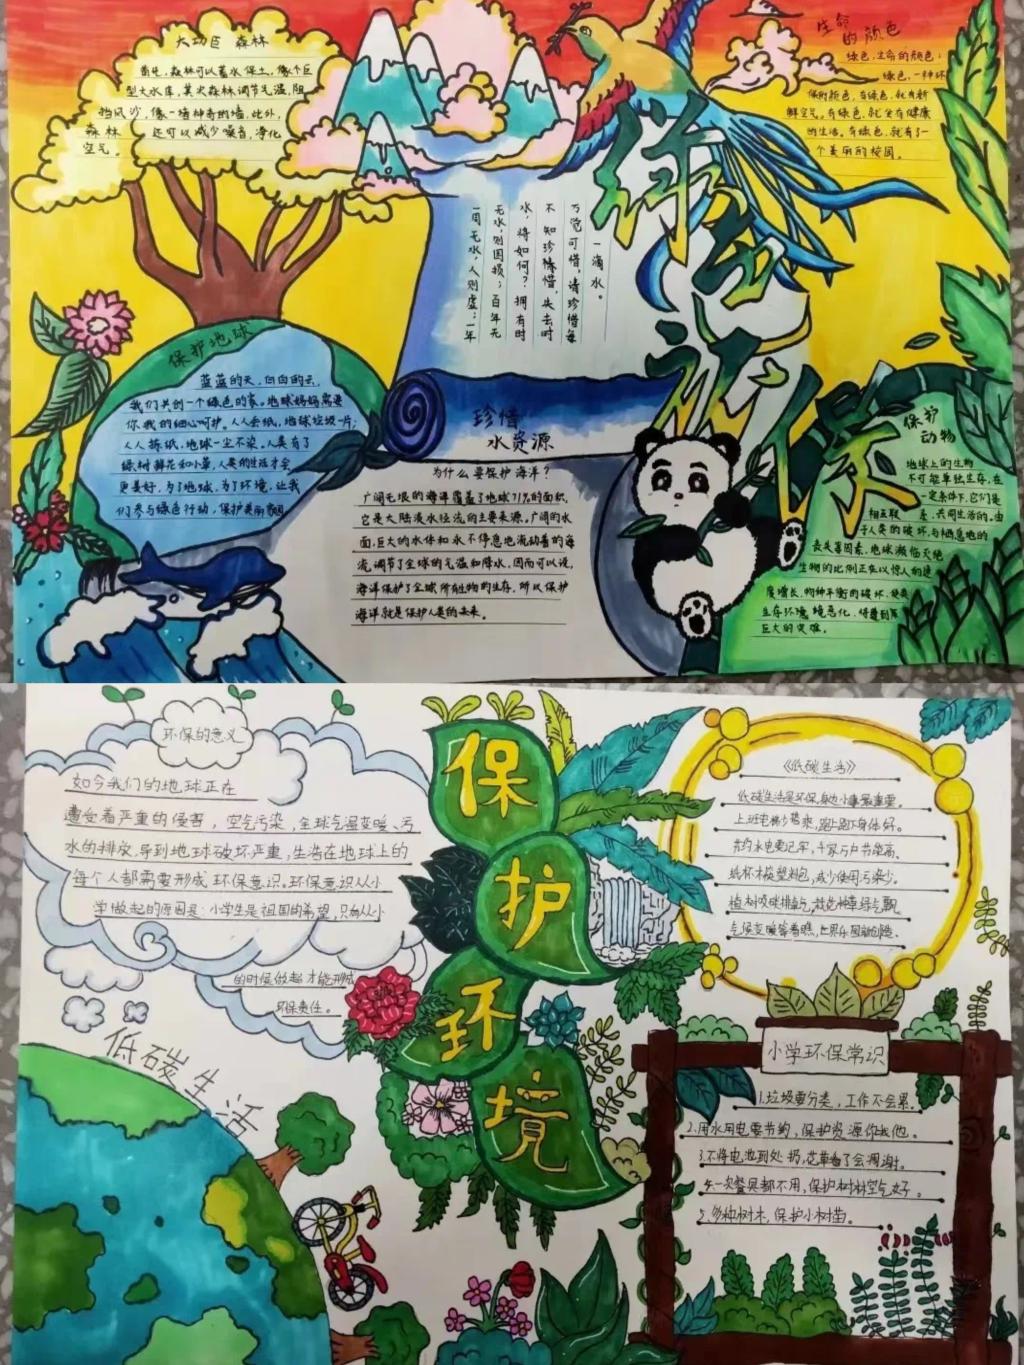 大功臣 森林
首先,森林可以蓄水保土,像个巨
型大水库,其次森林调节气温,阻
挡风沙,像一墙神奇的墙,此外,
森林 还可以减少噪音,净化
空气。
生命
的颜色
绿色,生命的颜色;
绿色,一种环
保的颜色,有绿色,就有新
鲜空气。有绿色,就会有健康
的生活。有绿色,就有了一
个美丽的校园。
绿色
一滴水。
万觉可惜,请珍惜每
不知珍惜,失去时
水,将如何?拥有时
无水,则国损;百年无
一周无水,人则虚;一年
保护地球
蓝蓝的天,白白的云,
我们共创一个绿色的家,地球妈妈需要
你我的细心呵护。人人丢纸,地球垃圾一片;
人人拣纸,地球一尘不染,人类有了
绿树鲜花和小草,人类的生活才会
更美好,为了地球,为了环境,让我
们参与绿色行动,保护美丽家园
珍惜
水资源
为什么要保护海洋?
广阔无垠的海洋覆盖了地球71%的面积,
它是大陆淡水径流的主要来源。广阔的水
面,巨大的水体和永不停息地流动着的海
流,调节了全球的气温和降水,因而可以说,
海洋保护了全球所有生物的生存。所以保护
海洋就是保护人类的未来。
保护
动物
地球上的生物
不可能单独生存,在
一定条件下,它们是
相互联系,共同生活的。由
于人类的破坏,与栖息地的
丧失等因素,地球濒临灭绝
生物的比例正在以惊人的速
度增长,物种平衡的破坏,使类
生存环境 恶化,将遭到
巨大的灾难。
环保的意义
如今我们的地球正在
遭受着严重的侵害,空气污染,全球气温变暖、污
水的排放,导到地球破坏严重,生活在地球上的
每个人都需要形成环保意识。环保意识从小
学做起的原因是:小学生是祖国的希望,只有从小
的时候做起才能形成
环保责任。
保
护
环
境
低碳生活
《低碳生活》
低碳生活是环保,身边小事最重要。
上班电梯少搭乘,跑上跑下身体好。
节约水电要记牢,千家万户节能高。
纸杯木筷塑料包,减少使用污染少。
植树
气候变暖等着瞧,世界
小学环保常识
1.垃圾要分类,工作不会累。
2.用水用电要节约,保护资源你我他。
3.不将电池到处扔,花草看了会凋谢。
4.一次餐具都不用,保护树林空气好。
5.多种树木,保护小树苗。